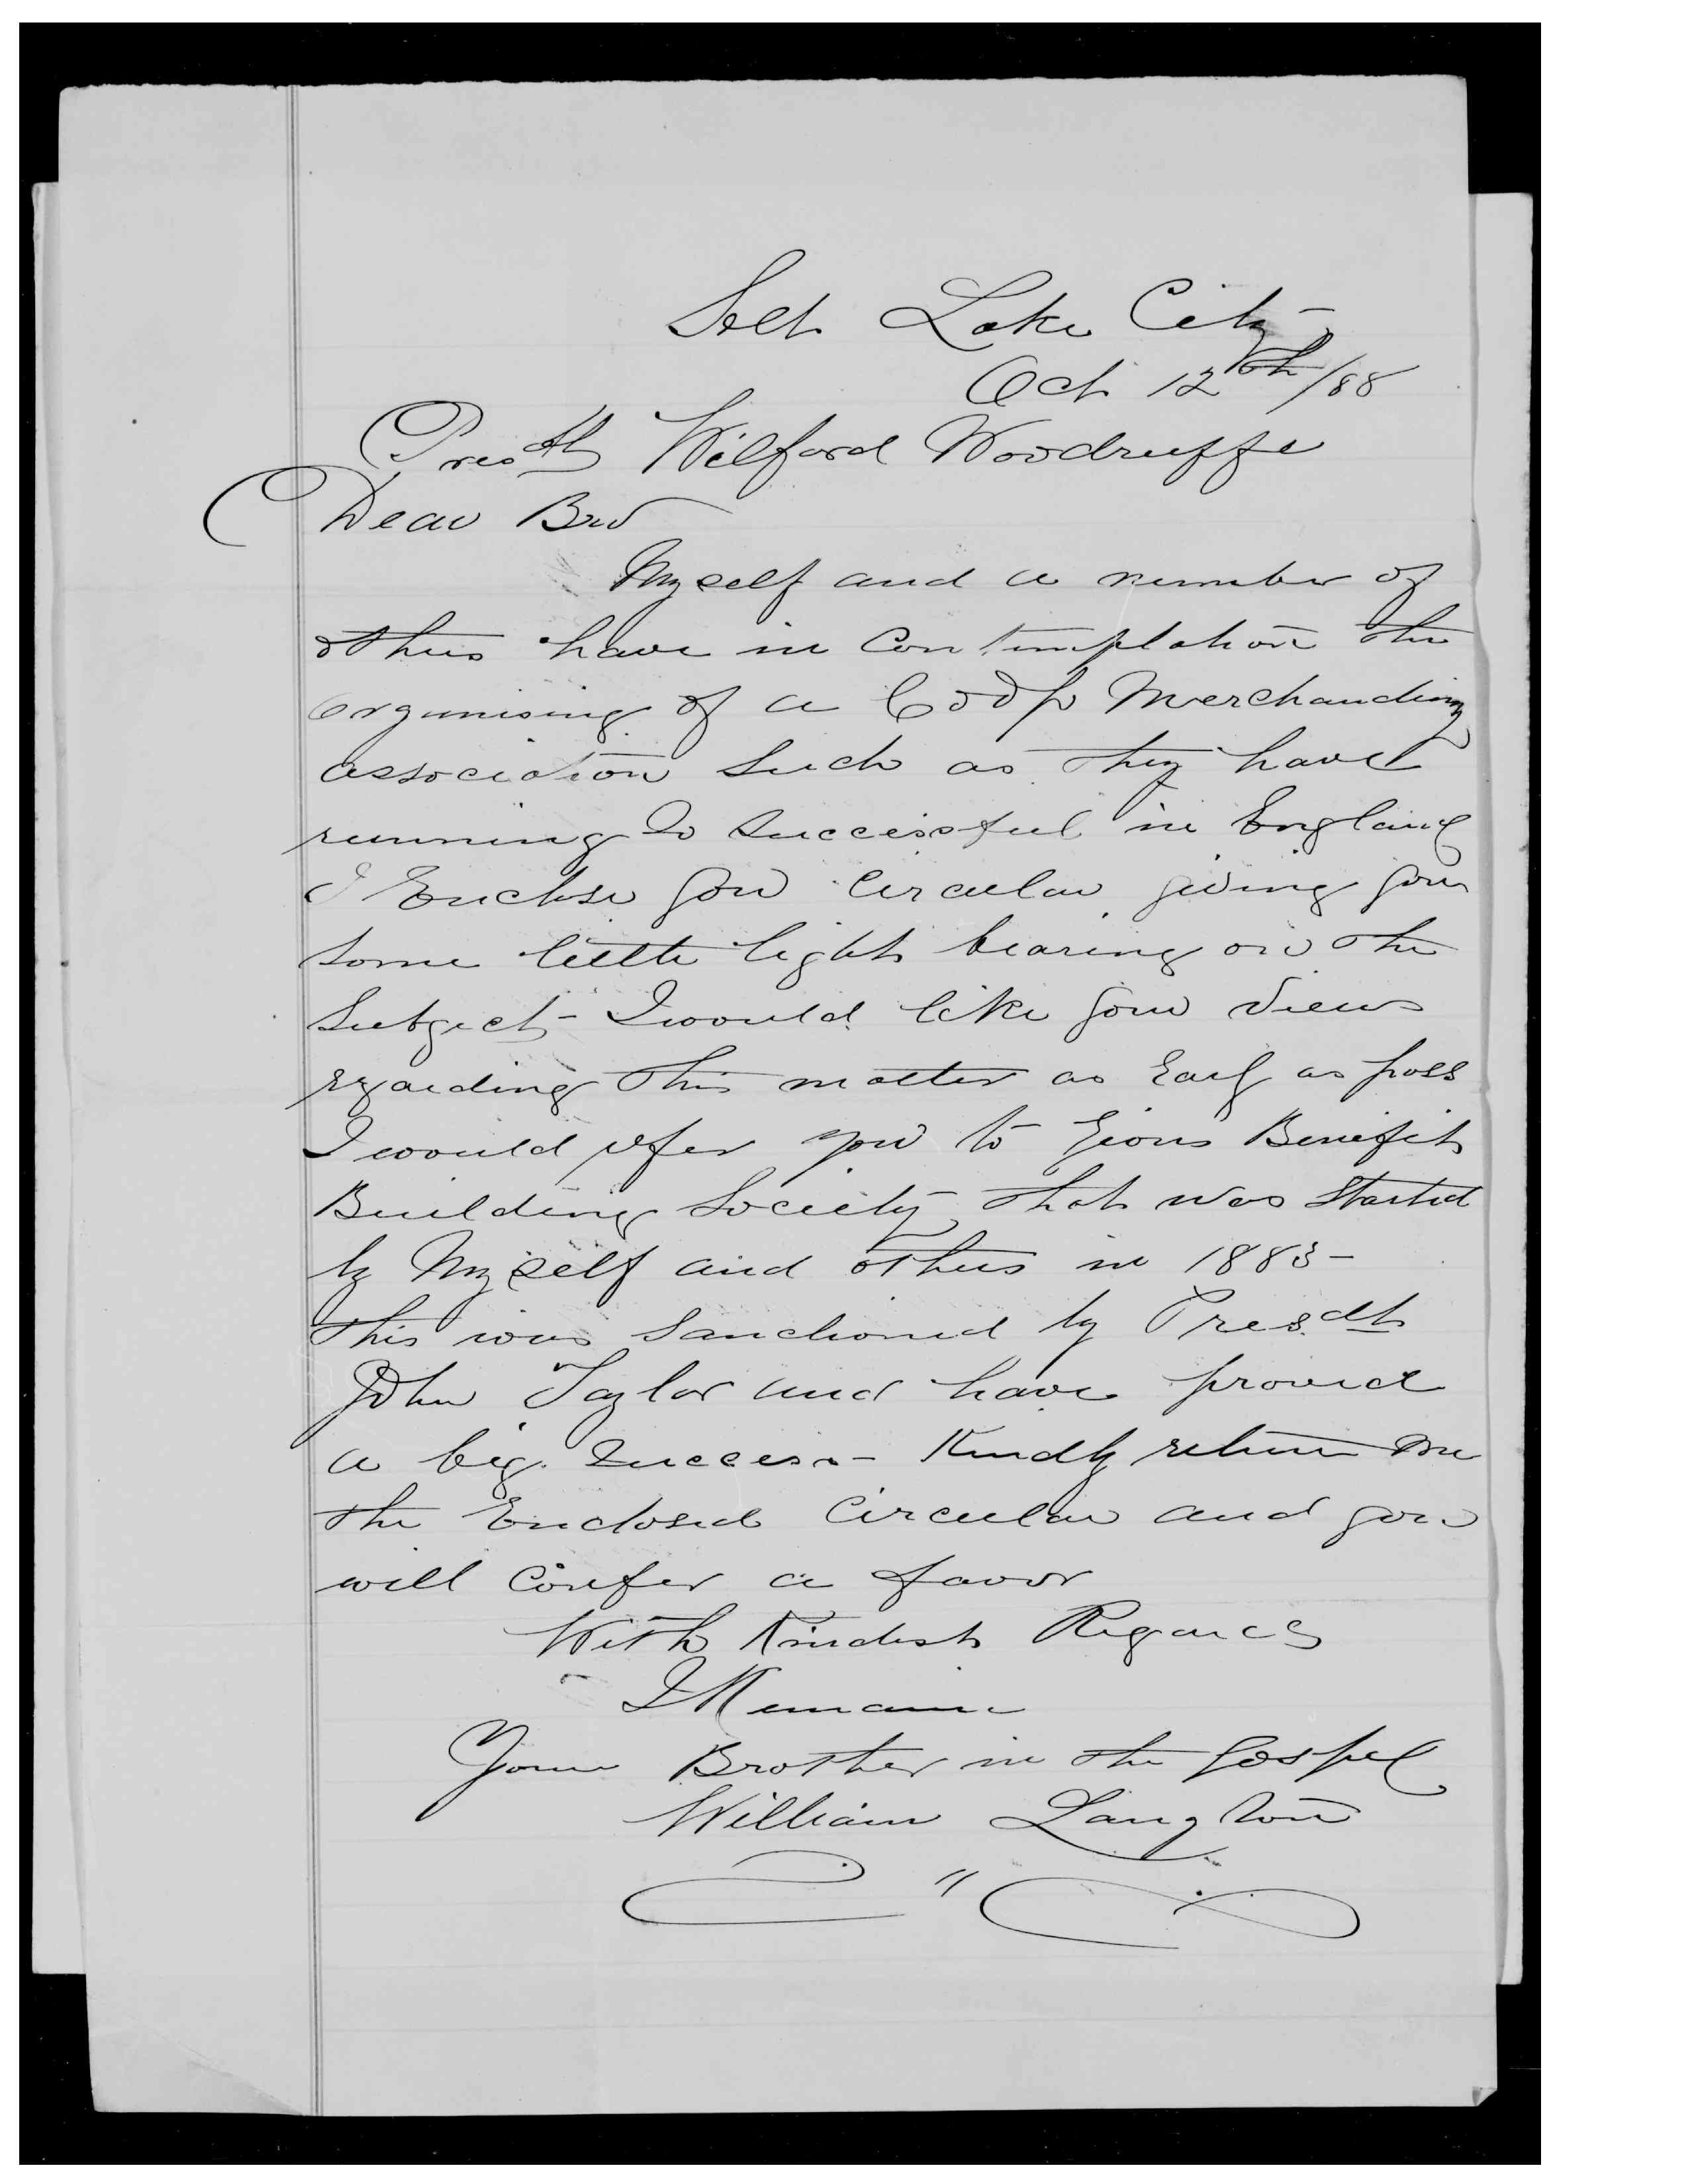 Salt Lake City
Oct 12th/88
Presdt Wilford Woodruffe
Dear Bro
Myself and a number of
others have in Contemplation the
organising of a Coop Merchandising
association Such as they have
running So Successful in England
I Enclose you Circular giving you
Some little light bearing on the
Subject - I would like your views
regarding this matter as Early as poss
I would refer you to Zions Benefit
Building Society that was Started
by Myself and others in 1883 -
this was Sanctioned by Presdt
John Taylor and have proved
a big Success - Kindly return me
the Enclosed Circular and you
will Confer a favor
With Kindest Regards
I Remain
Your Brother in the Gospel
William Langton